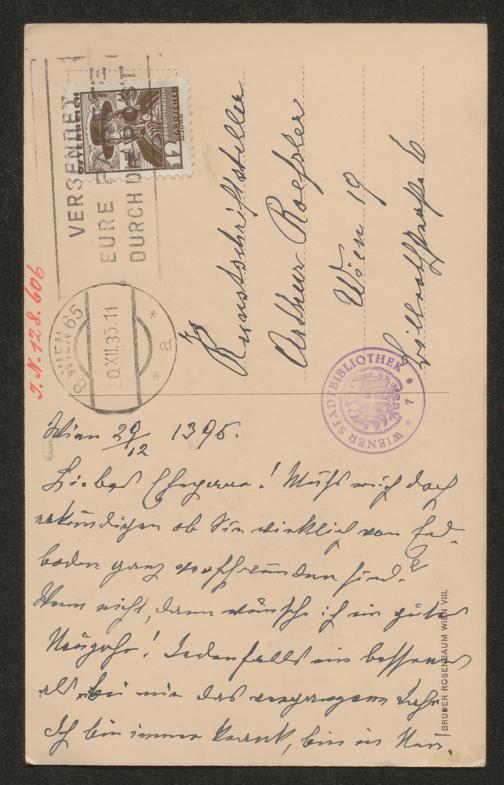 VERSENDET
EURE PAKETE
DURCH DIE POST
ÖSTERREICH
12
GROSCHEN
8 WIEN 65
30.XII.35.11
* a *
J. N. 128.606
Kunstschriftsteller
Arthur Roessler
Wien 19
Billrothstraße 6
WIENER STADTBIBLIOTHEK
* 7 *
Wien 29/12 1395.
Liebes Ehepaar! Muß mich doch
erkundigen ob Sie wirklich vom Erd-
boden ganz verschwunden sind?
Wenn nicht, dann wünsche ich ein gutes
Neujahr! Jedenfalls ein besseres
als bei mir das vergangene Jahr
Ich bin immer krank, bin in
BRÜDER ROSENBAUM WIEN VIII.